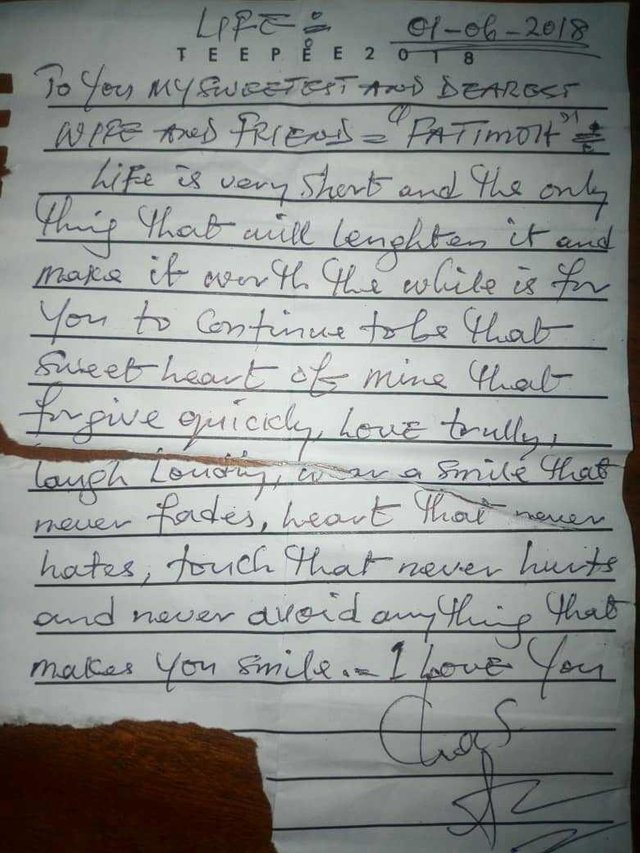 LIFE :=
01-06-2018
TEEPEE2018
To You MY SWEETEST AND DEAREST
WIFE AND FRIEND = "FATIMOH" =
Life is very short and the only
thing that will lenghten it and
make it worth the while is for
You to continue to be that
sweet heart of mine that
forgive quickly, Love trully,
laugh Loudly, wear a smile that
never fades, heart that never
hates, touch that never hurts
and never avoid anything that
makes you smile. = I Love You